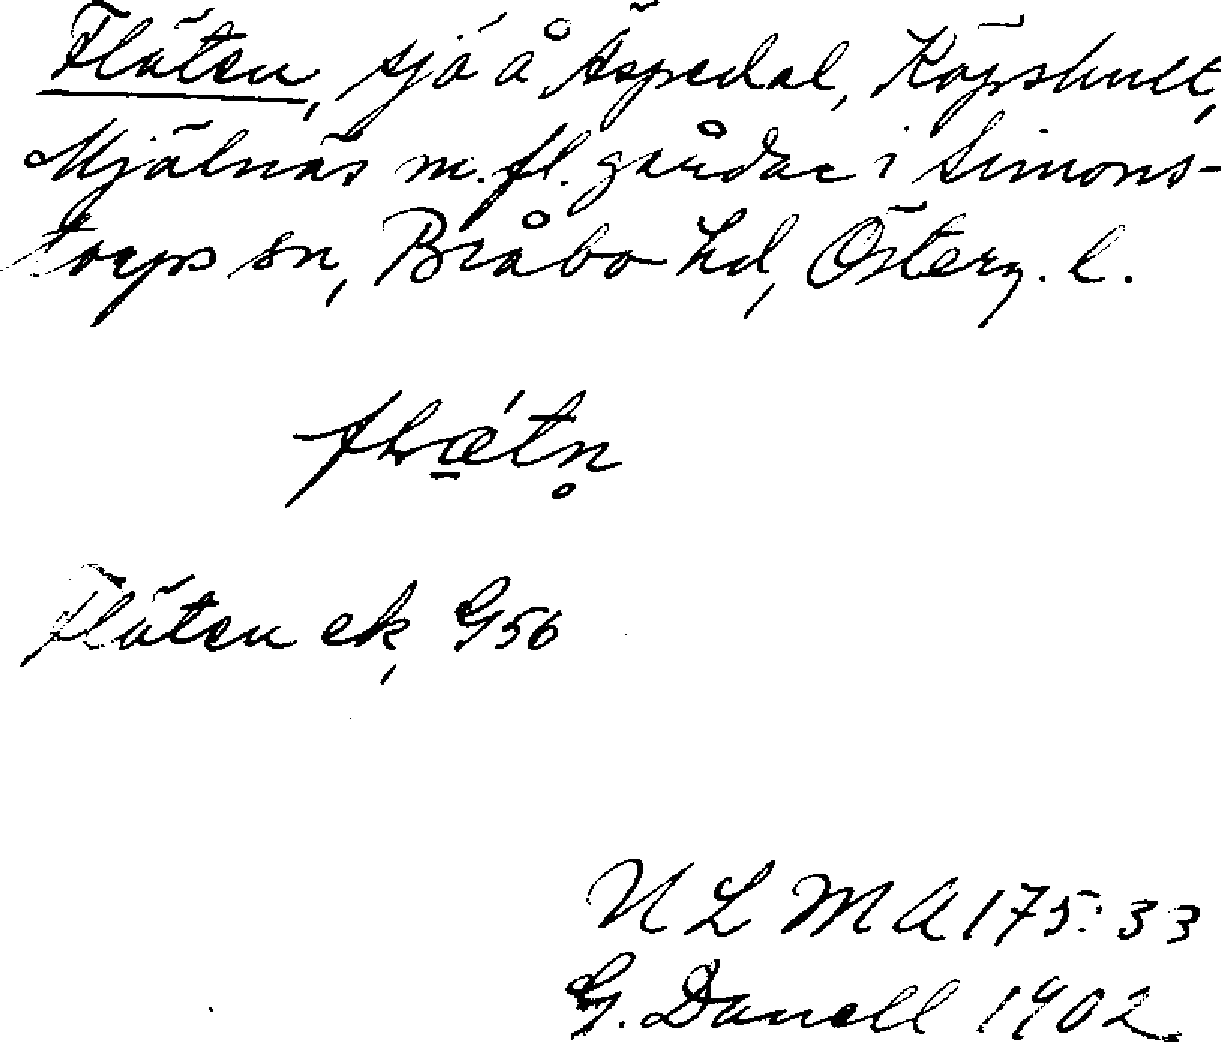 Fläten, sjö å Äspedal, Köpshult,
Mjälnäs m.fl. gårdar i Simons-
torps sn, Bråbo hd, Österg. l.
Fläten ek, G56
ULMA 175:33
G. Danell 1902